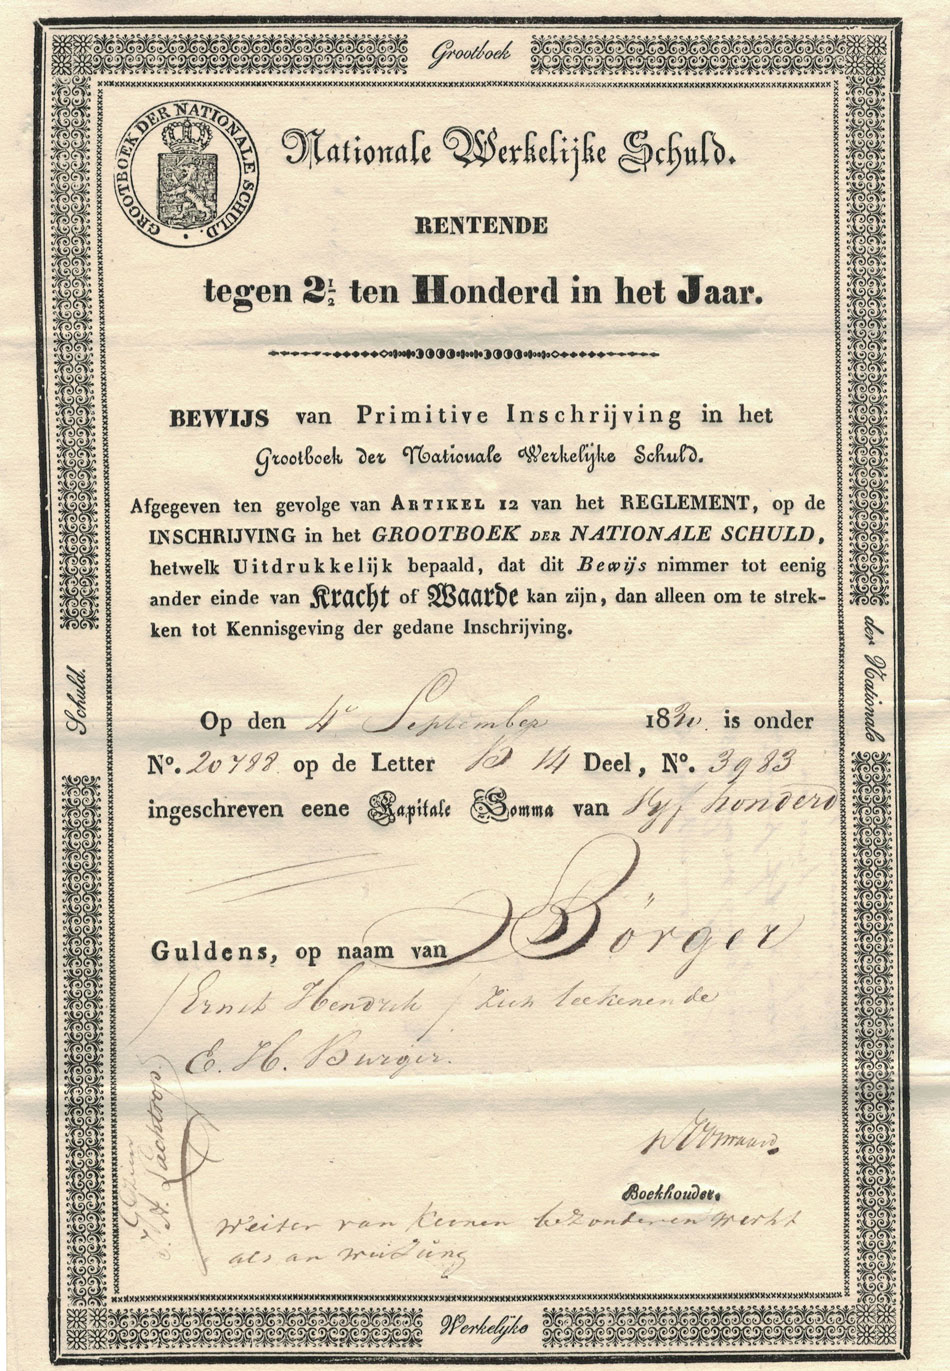 Grootboek
GROOTBOEK DER NATIONALE SCHULD.
Nationale Werkelijke Schuld.
RENTENDE
tegen 2½ ten Honderd in het Jaar.
BEWIJS van Primitive Inschrijving in het
Grootboek der Nationale Werkelijke Schuld.
Afgegeven ten gevolge van ARTIKEL 12 van het REGLEMENT, op de
INSCHRIJVING in het GROOTBOEK DER NATIONALE SCHULD,
hetwelk Uitdrukkelijk bepaald, dat dit Bewijs nimmer tot eenig
ander einde van Kracht of Waarde kan zijn, dan alleen om te strek-
ken tot Kennisgeving der gedane Inschrijving.
Op den 4e September 18 is onder
No. 20788 op de Letter B 14 Deel, No. 3983
ingeschreven eene Kapitale Somma van Vyf honderd
Guldens, op naam van Börger
/Ernst Hendrik/ zich teekenende
E. H. Burger.
Boekhouder.
Weiter van keinen bezonderen werht
als an
der Nationale
Werkelijke
Schuld.